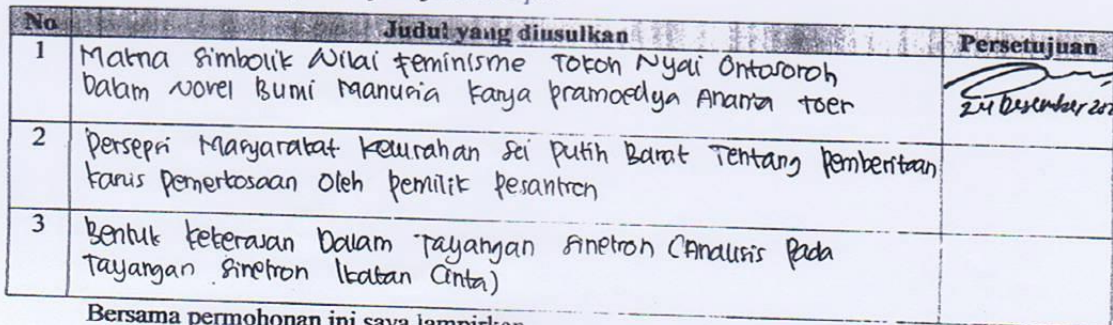 No Judul yang diusulkan Persetujuan
1 Makna Simbolik Nilai Feminisme Tokoh Nyai Ontosoroh
Dalam Novel Bumi Manusia Karya Pramoedya Ananta Toer
24 Desember 202
2 Persepsi Masyarakat Kelurahan Sei Putih Barat Tentang Pemberitaan
Kasus Pemerkosaan Oleh Pemilik Pesantren
3 Bentuk Kekerasan Dalam Tayangan Sinetron (Analisis Pada
Tayangan Sinetron Ikatan Cinta)
Bersama permohonan ini saya lampirkan